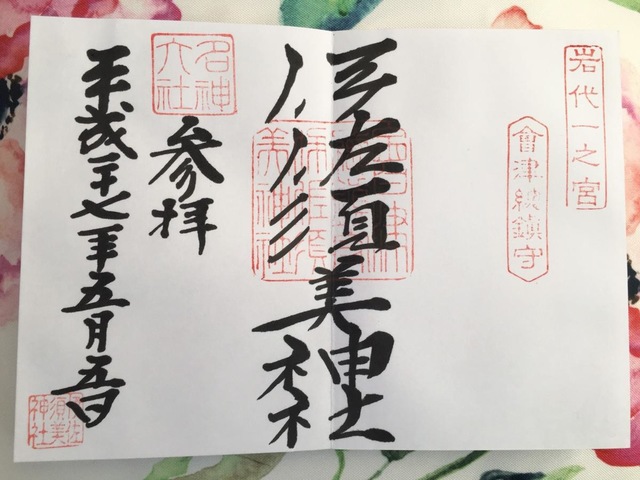 岩代一之宮
會津総鎮守
伊佐須美神社
名神大社
参拝
平成二十七年五月五日
伊佐須美神社